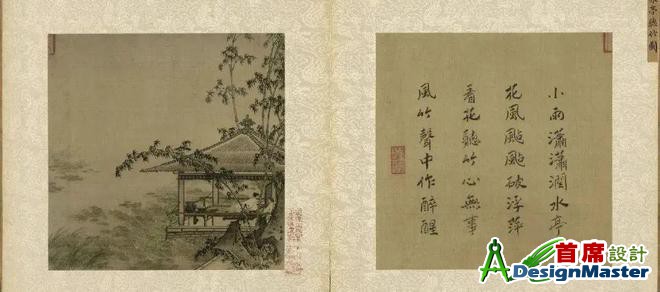 小雨瀟瀟潤水亭
花風颭颭破浮萍
看花聽竹心無事
風竹聲中作醉醒
首席設計
DesignMaster